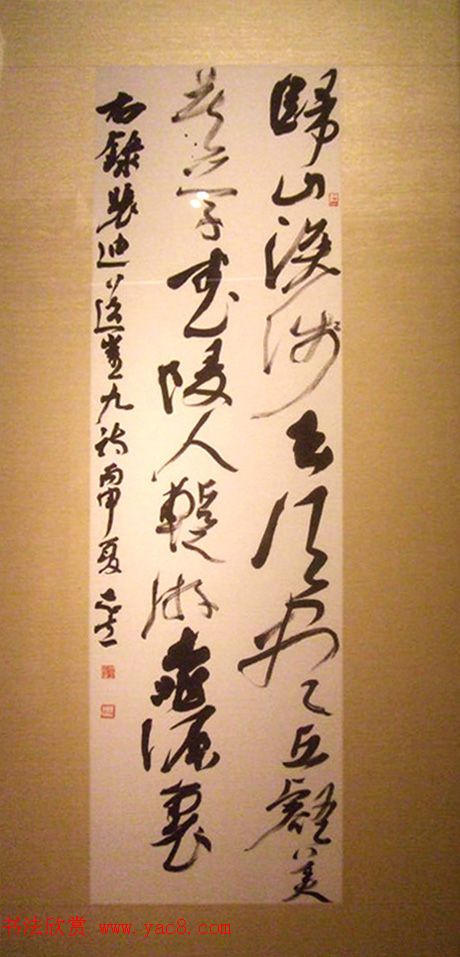 歸山深浅去須尽丘壑美
莫学武陵人暫游桃源裏
右錄裴迪送崔九詩丙申夏
书法欣赏 www.yac8.com